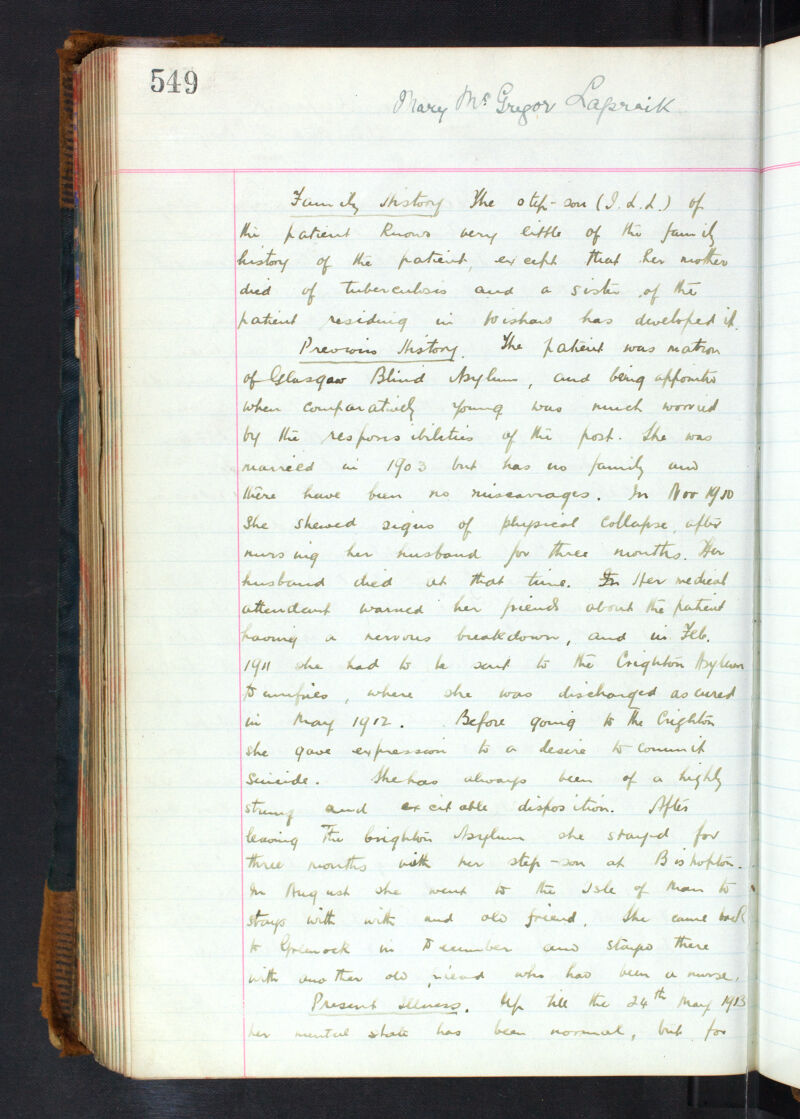 549
Mary Mc Gregor Lapraik
Family History The step-son (I.L.L.) of
the patient knows very little of the family
history of the patient, except that her mother
died of tuberculosis and a sister of the
patient residing in Wishaw has developed it.
Previous History. The patient was matron
of Glasgow Blind Asylum, and being appointed
when comparatively young was much worried
by the responsibilities of the post. She was
married in 1903 but has no family and
there have been no miscarriages. In Nov 1910
she shewed signs of physical collapse, after
nursing her husband for three months. Her
husband died at that time. In Her medical
attendant warned her friends about the patient
having a nervous breakdown, and in Feb.
1911 she had to be sent to the Crighton Asylum
Dumfries, where she was discharged as cured
in May 1912. Before going to the Crighton
she gave expression to a desire to commit
suicide. She has always been of a highly
strung and excitable disposition. After
leaving the Crighton Asylum she stayed for
three months with her step-son at Bishopton.
In August she went to the Isle of Man to
stay with with and old friend. She came back
to Greenock in December and stayed there
with another old friend who had been a nurse.
Present Illness. Up till the 24th May 1913
her mental state has been normal, but for